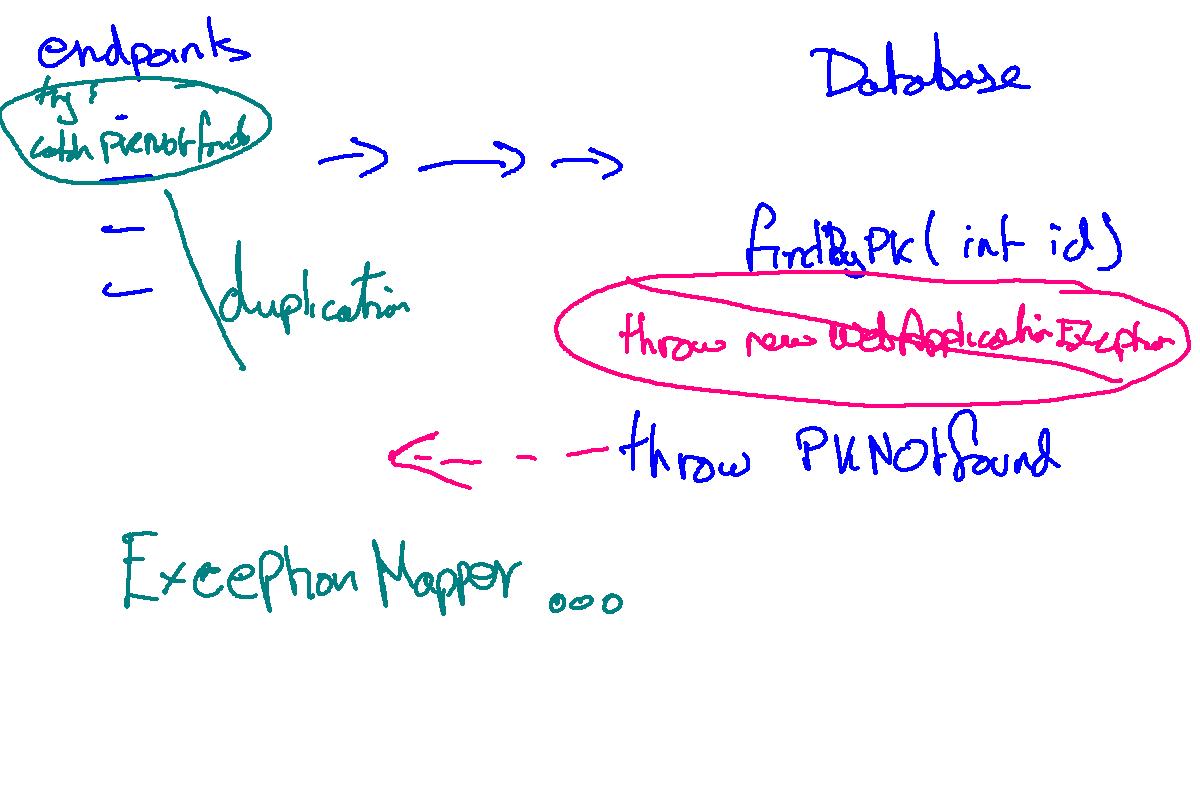 endpoints
try {
catch PKNotfound
duplication
Database
findByPK( int id)
throw new WebApplicationException
throw PKNotfound
Exception Mapper ...